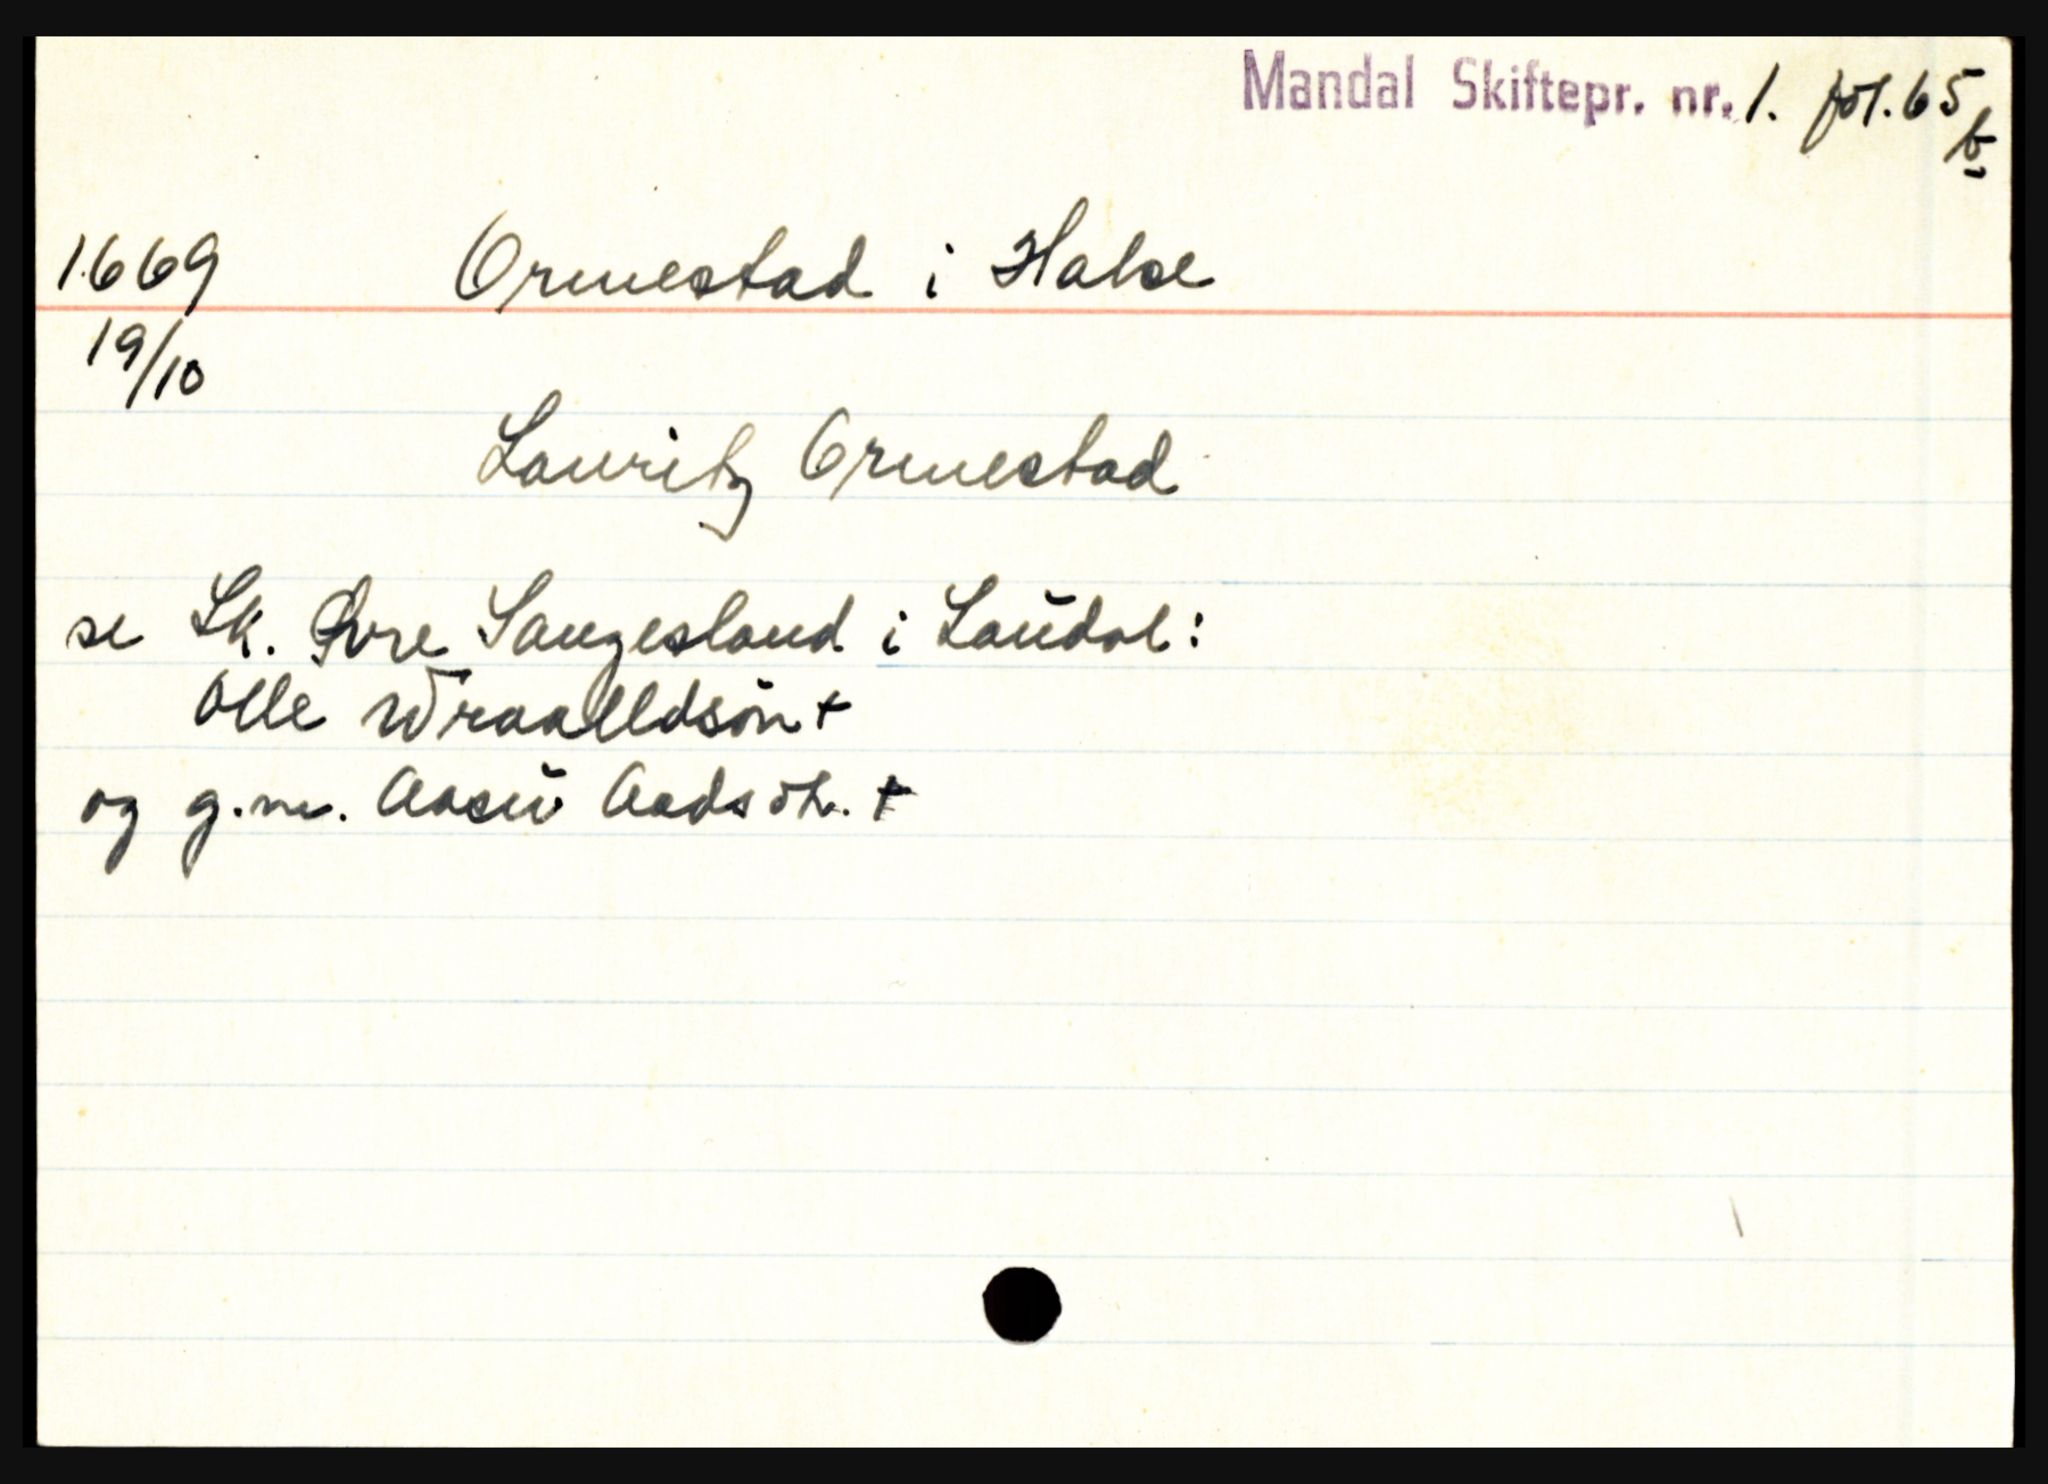 Mandal Skiftepr. nr. 1. fol. 65 b
1669 Ormestad i Halse
19/10
Lauritz Ormestad
se Sk. Øvre Laugesland i Laudal:
Olle Wraalldsön +
og g.m. Aasu Aadsdtr. +